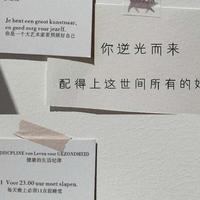 Je bent een groot kunstenaar,
en goed zorg voor jezelf.
你是一个大艺术家要照顾好自己
你逆光而来
配得上这世间所有的好
DISCIPLINE van Leven voor GEZONDHEID
健康的生活纪律
1 Voor 23.00 uur moet slapen.
每天晚上必须11点前睡觉